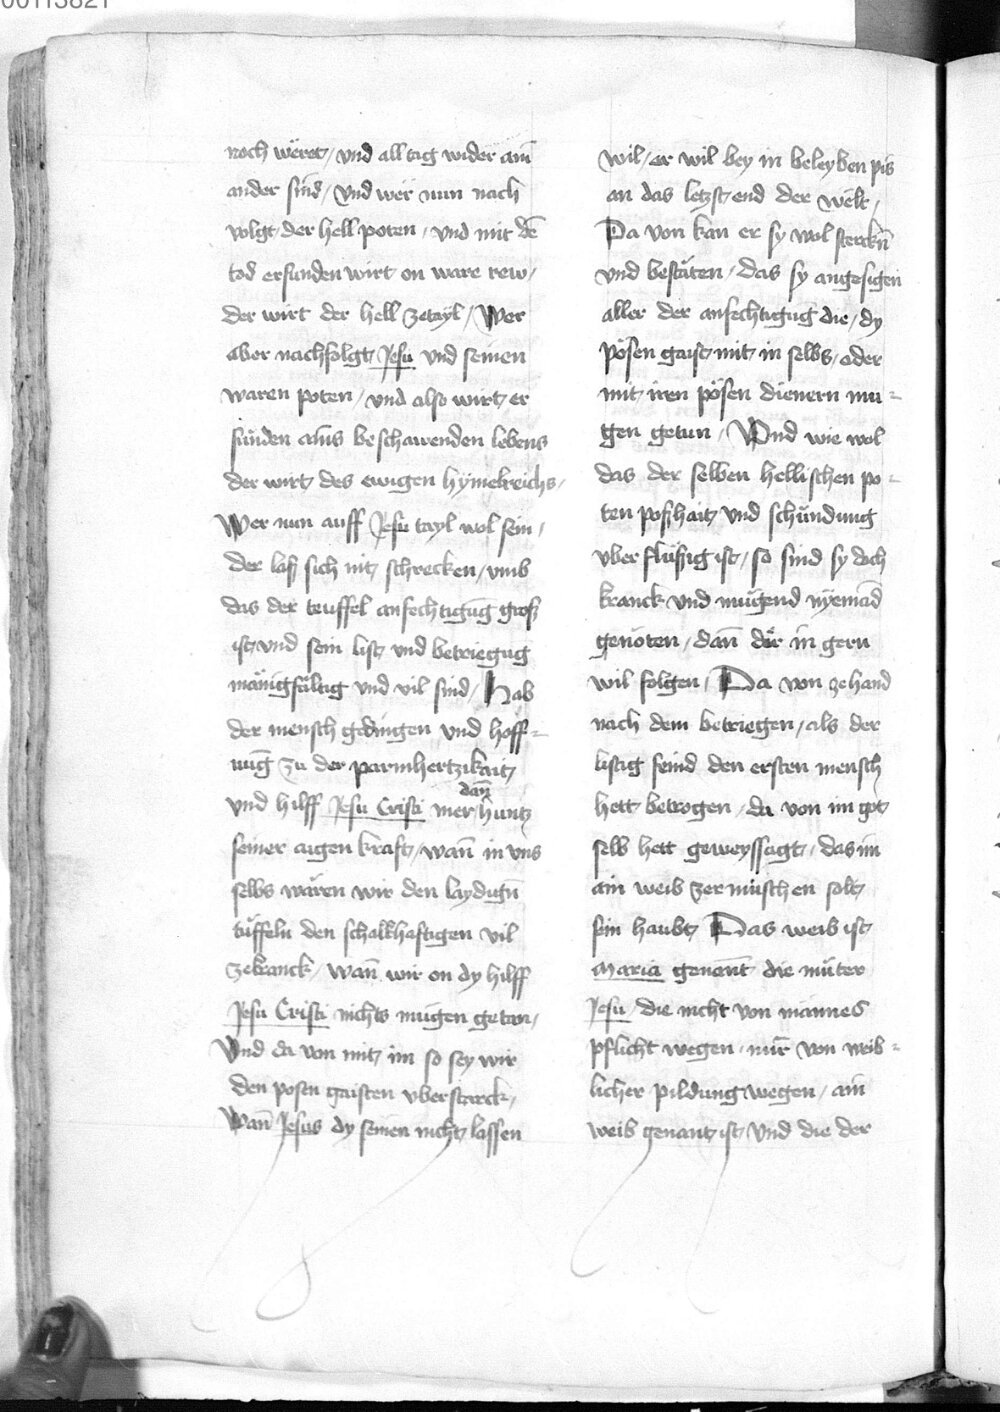 00113821
noch weret / vnd all tag wider ain
ander sind / vnd wer nun nach
volgt der hell poten / vnd mit dē
tod erfunden wirt on ware rew /
der wirt der hell zetayl / Wer
aber nachfolgt Jesu vnd seinen
waren poten / vnd also wirt er
funden ains beschawenden lebens
der wirt des ewigen hymelreichs /
Wer nun auff Jesu tayl wol sein /
der laß sich nit schrecken / vmb
das der teuffel anfechtigūg groß
ist vnd sein list vnd betriegūg
mänigfaltig vnd vil sind / Hab
der mensch gedingen vnd hoff=
nūg zu der parmhertzikait
vnd hilff Jesu Cristi mer dan̄ huntz
seiner aigen kraft / wan̄ in vns
selbs wären wir den laydign̄
tüffeln den schalkhaftigen vil
zekranck / wan̄ wir on dy hilff
Jesu Cristi nichts mugen getan /
Vnd da von mit im so sey wir
den posen gaisten vberstarck /
Wan̄ Jesus dy seinen nicht lassen
wil / er wil bey in beleyben pis
an das letzst end der welt /
Da von kan er sy wol sterckn̄
vnd bestäten / das sy angesigen
aller der anfechtigūg die / dy
pösen gaist mit in selbs / oder
mit iren pösen dienern mu=
gen getun / Vnd wie wol
das der selben hellischen po=
ten poßhait vnd schündung
vberflüssig ist / so sind sy doch
kranck vnd mügend nyemād
genöten / dan̄ der in gern
wil folgen / Da von zehand
nach dem betriegen / als der
listig feind den ersten mensch
hett betrogen / da von im got
selb hett geweyssagt / das im
ain weib zermüschen solt
sein haubt / Das weib ist
Maria genen̄t die müter
Jesu / die nicht von mannes
pflicht wegen / nur von weib=
licher pildung wegen / ain
weib genant ist / Vnd die der